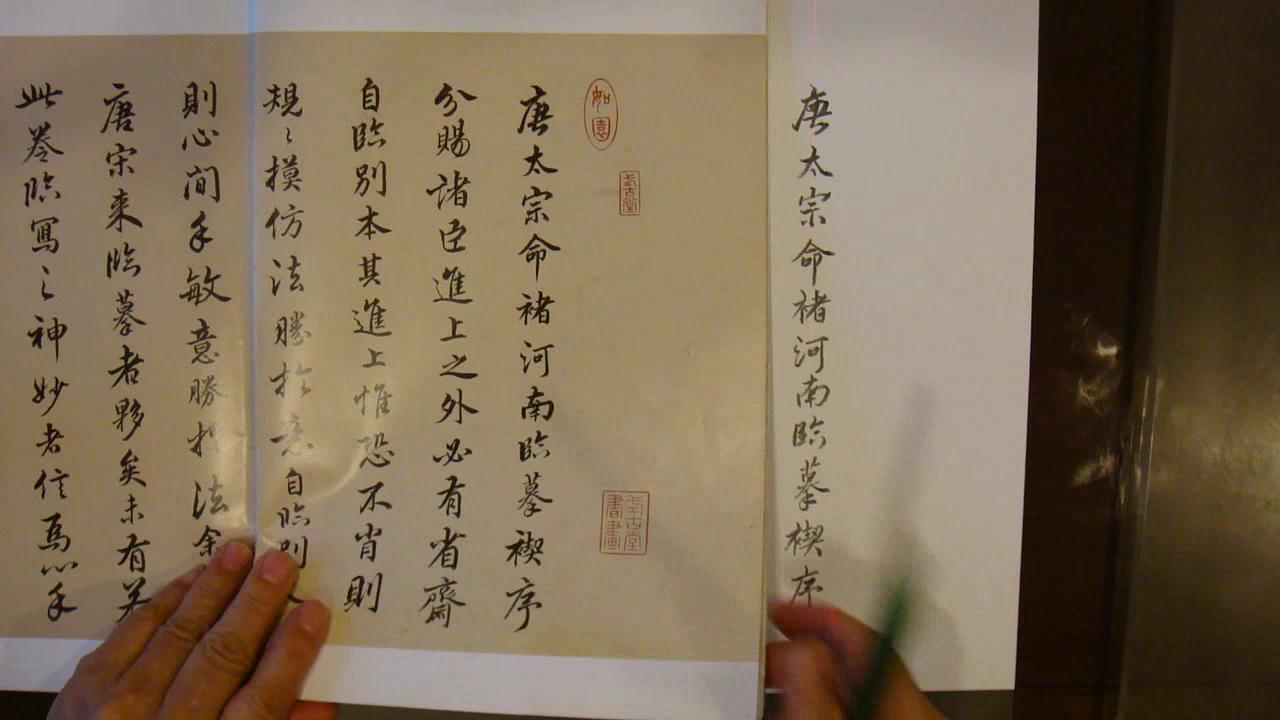 唐太宗命褚河南臨摹禊序
如意
式古堂
式古堂書畫
唐太宗命褚河南臨摹禊序
分賜諸臣進上之外必有省齋
自臨別本其進上惟恐不肖則
規〻摸仿法勝於意自臨別
則心間手敏意勝於法余
唐宋來臨摹者夥矣未有若
此卷臨寫之神妙者信爲心手